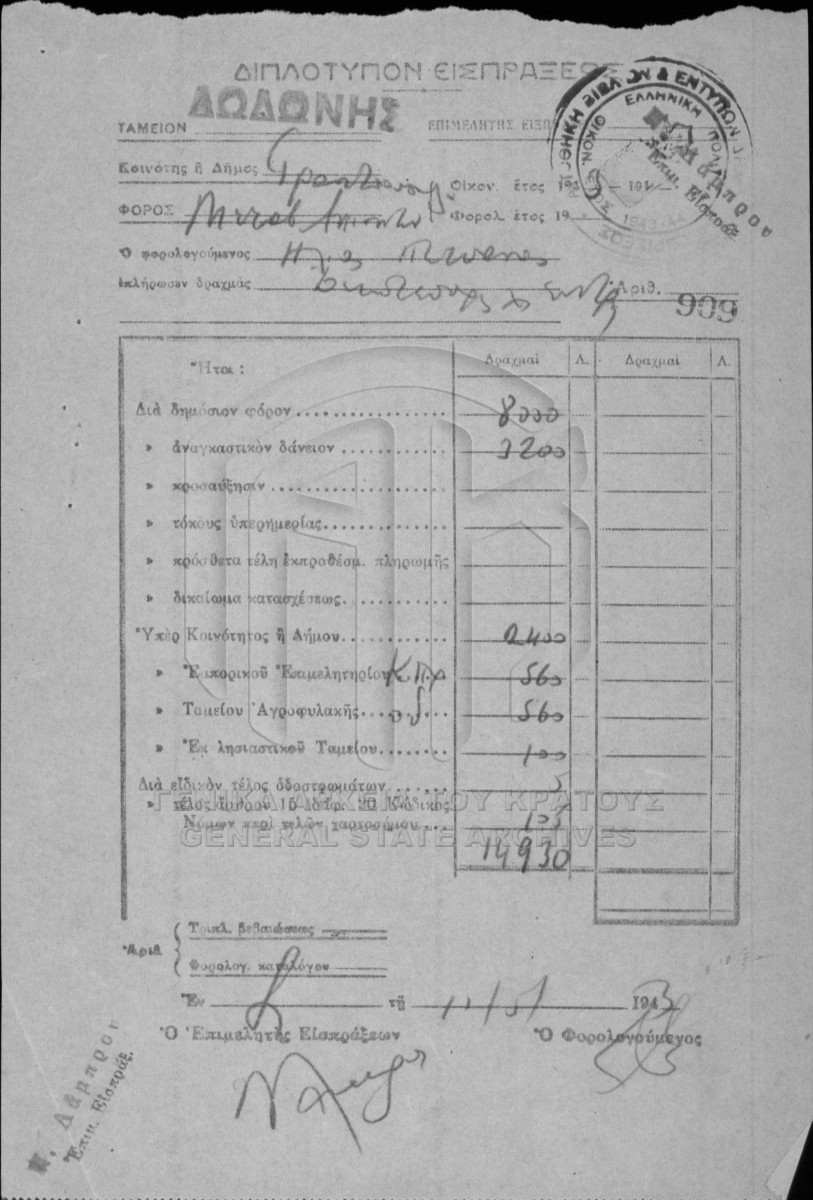 ΔΙΠΛΟΤΥΠΟΝ ΕΙΣΠΡΑΞΕΩΣ
ΤΑΜΕΙΟΝ ΔΩΔΩΝΗΣ ΕΠΙΜΕΛΗΤΗΣ ΕΙΣΠ
Κοινότης ἢ Δῆμος Οἰκον. ἔτος 194
ΦΟΡΟΣ Φορολ. ἔτος 19
Ὁ φορολογούμενος Ηλίας
ἐπλήρωσεν δραχμὰς Ἀριθ. 909
ΑΠΟΘΗΚΗ ΒΙΒΛΙΩΝ & ΕΝΤΥΠΩΝ
ΕΛΛΗΝΙΚΗ ΠΟΛΙΤ
1943-44
Ν. Λάμπρου
Ἐπιμ. Εἰσπράξ.
Ἤτοι : Δραχμαὶ Λ. Δραχμαὶ Λ.
Διὰ δημόσιον φόρον 8000
» ἀναγκαστικὸν δάνειον 3200
» προσαύξησιν
» τόκους ὑπερημερίας
» πρόσθετα τέλη ἐκπροθέσμ. πληρωμῆς
» δικαίωμα κατασχέσεως
Ὑπὲρ Κοινότητος ἢ Δήμου 2400
» Ἐμπορικοῦ Ἐπιμελητηρίου 560
» Ταμείου Ἀγροφυλακῆς 560
» Ἐκ λησιαστικοῦ Ταμείου 100
Διὰ εἰδικὸν τέλος ὁδοστρωμάτων 5
» τέλος ἄρθρου 15 ἐδάφ. 20 Κώδικος
Νόμων περὶ τελῶν χαρτοσήμου 105
14930
ΓΕΝΙΚΑ ΑΡΧΕΙΑ ΤΟΥ ΚΡΑΤΟΥΣ
GENERAL STATE ARCHIVES
Ἀριθ
Τριπλ. βεβαιώσεως
Φορολογ. καταλόγου
Ἐν τῇ 11/5/ 1943
Ὁ Ἐπιμελητὴς Εἰσπράξεων Ὁ Φορολογούμενος
Ν. Λάμπρου
Ἐπιμ. Εἰσπράξ.